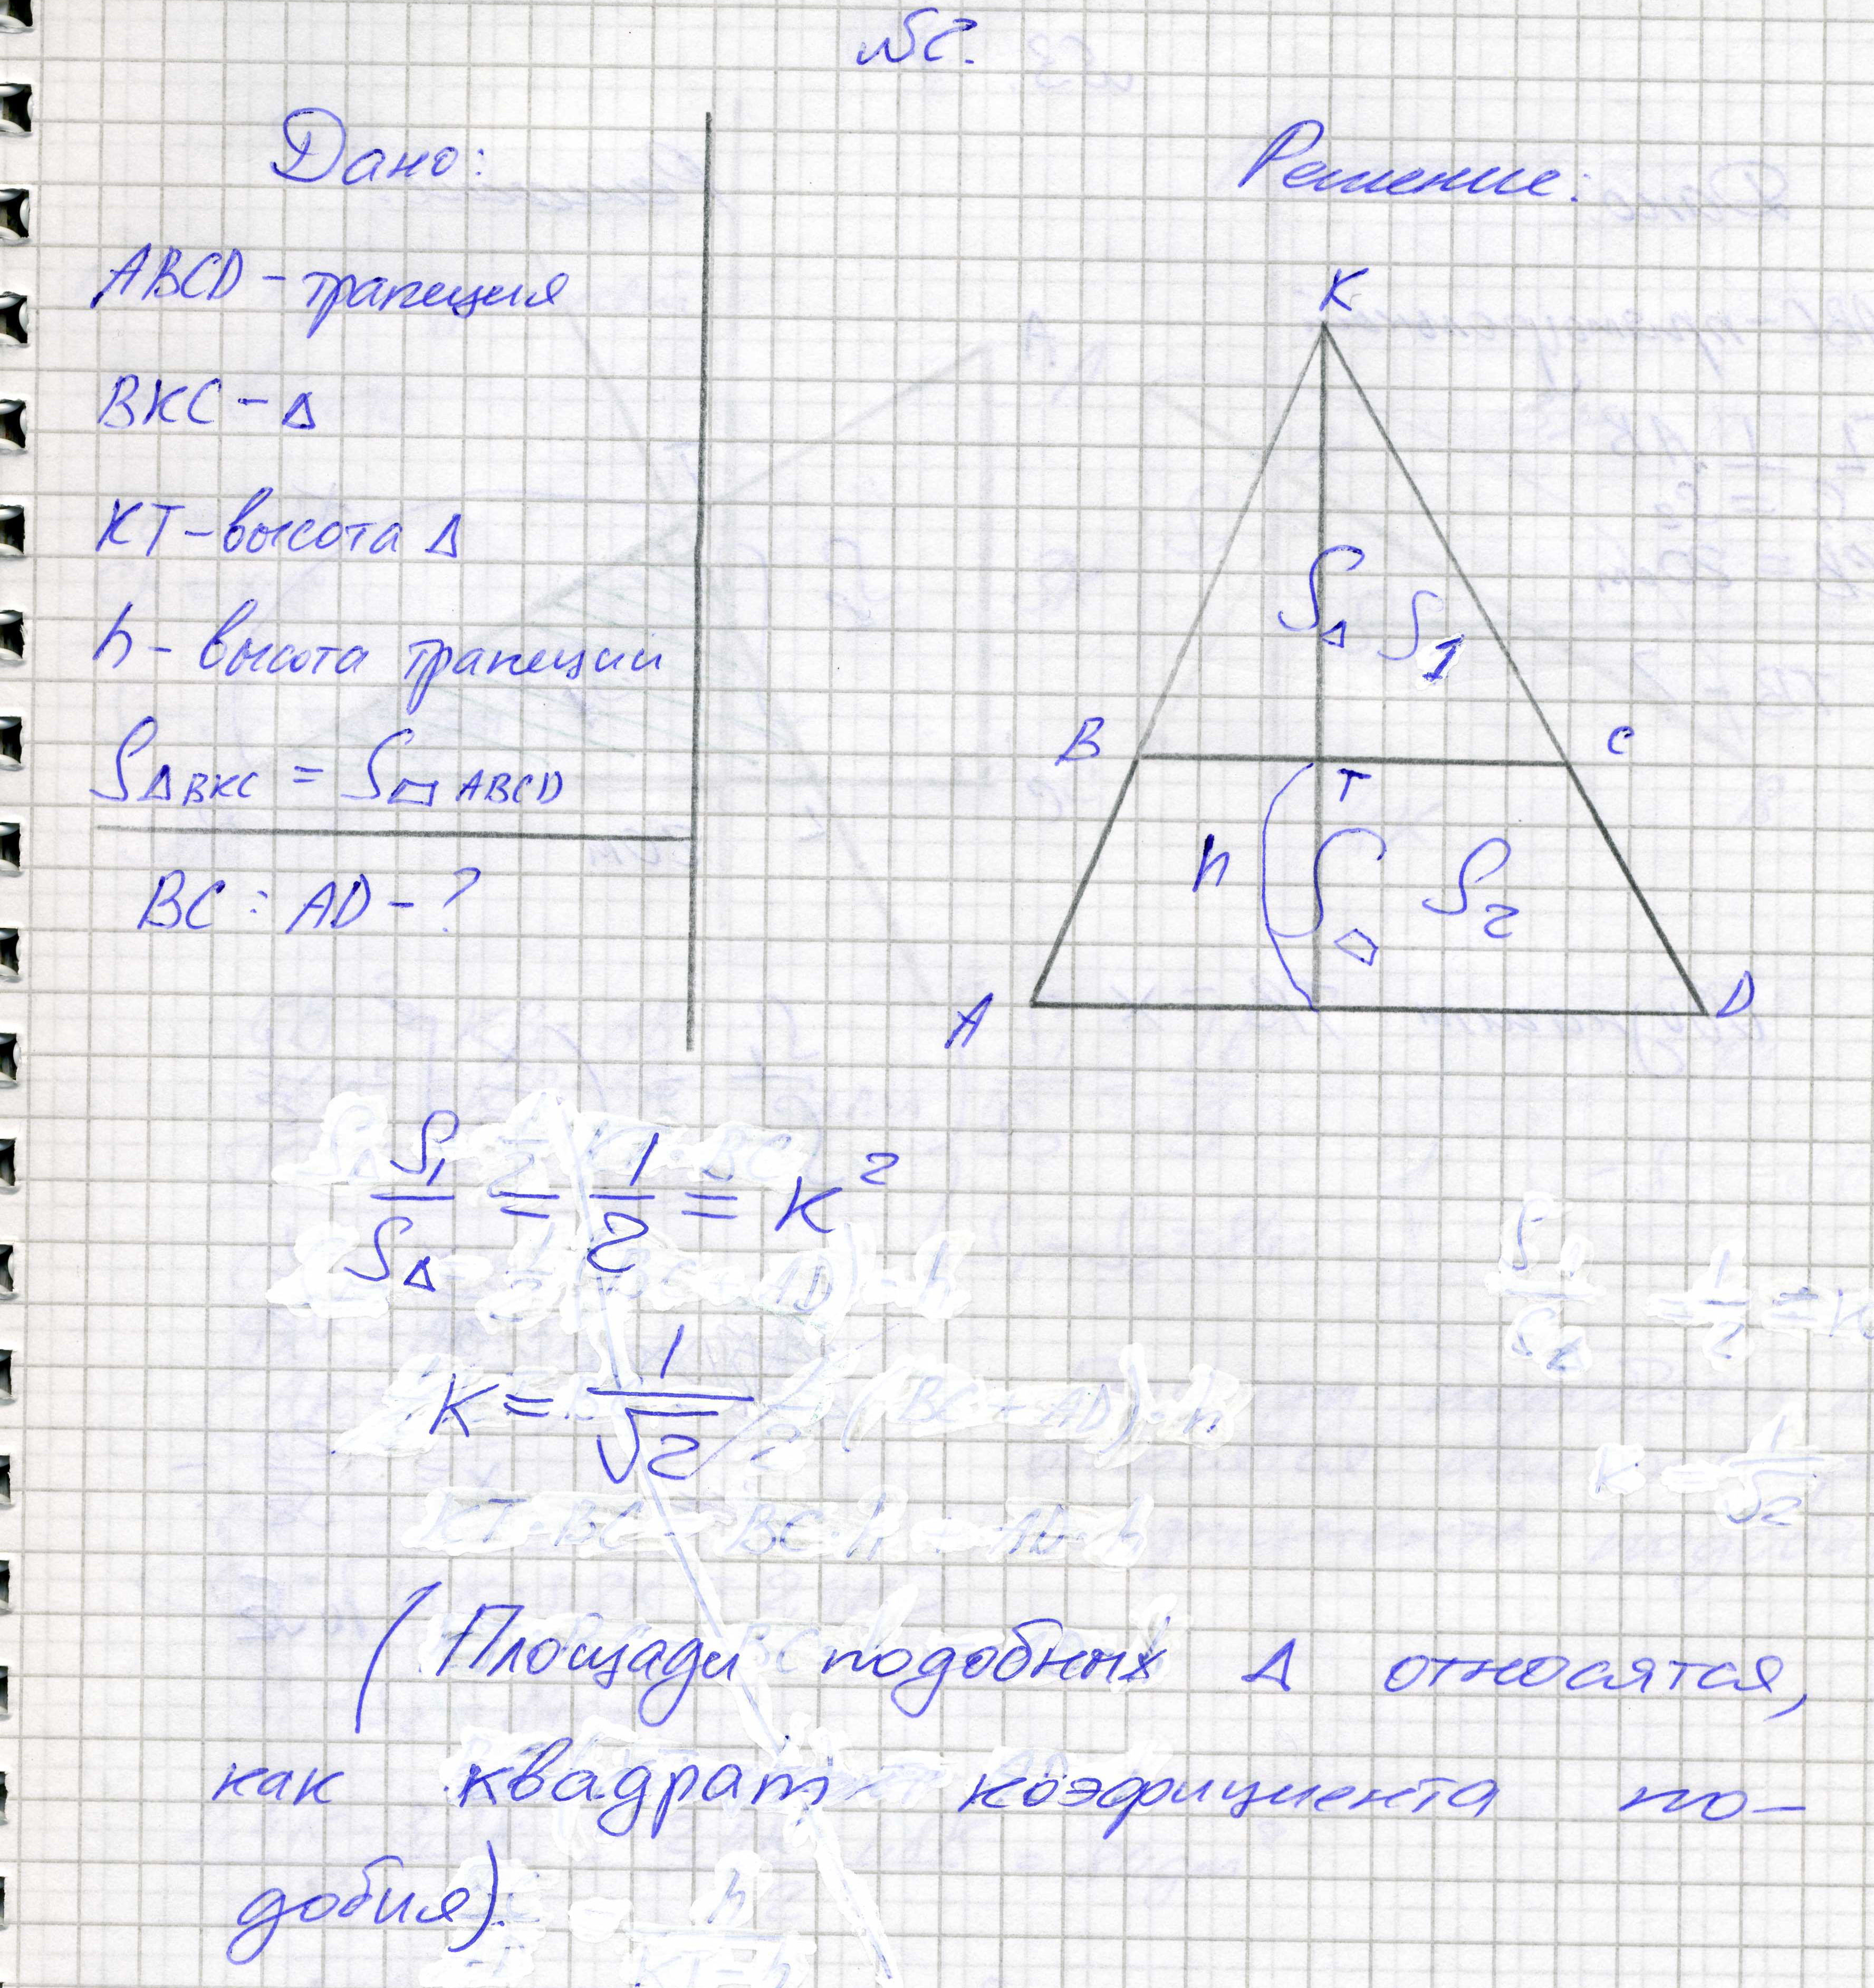 №2.
Дано:
ABCD - трапеция
BKC - Δ
KT - высота Δ
h - высота трапеции
SΔBKC = S▱ABCD
BC : AD - ?
Решение:
K
SΔ S1
B
C
T
h
S▱ S2
A
D
S1/SΔ = 1/2 = K²
K = 1/√2
(Площади подобных Δ относятся,
как квадрат коэфициента по-
добия).